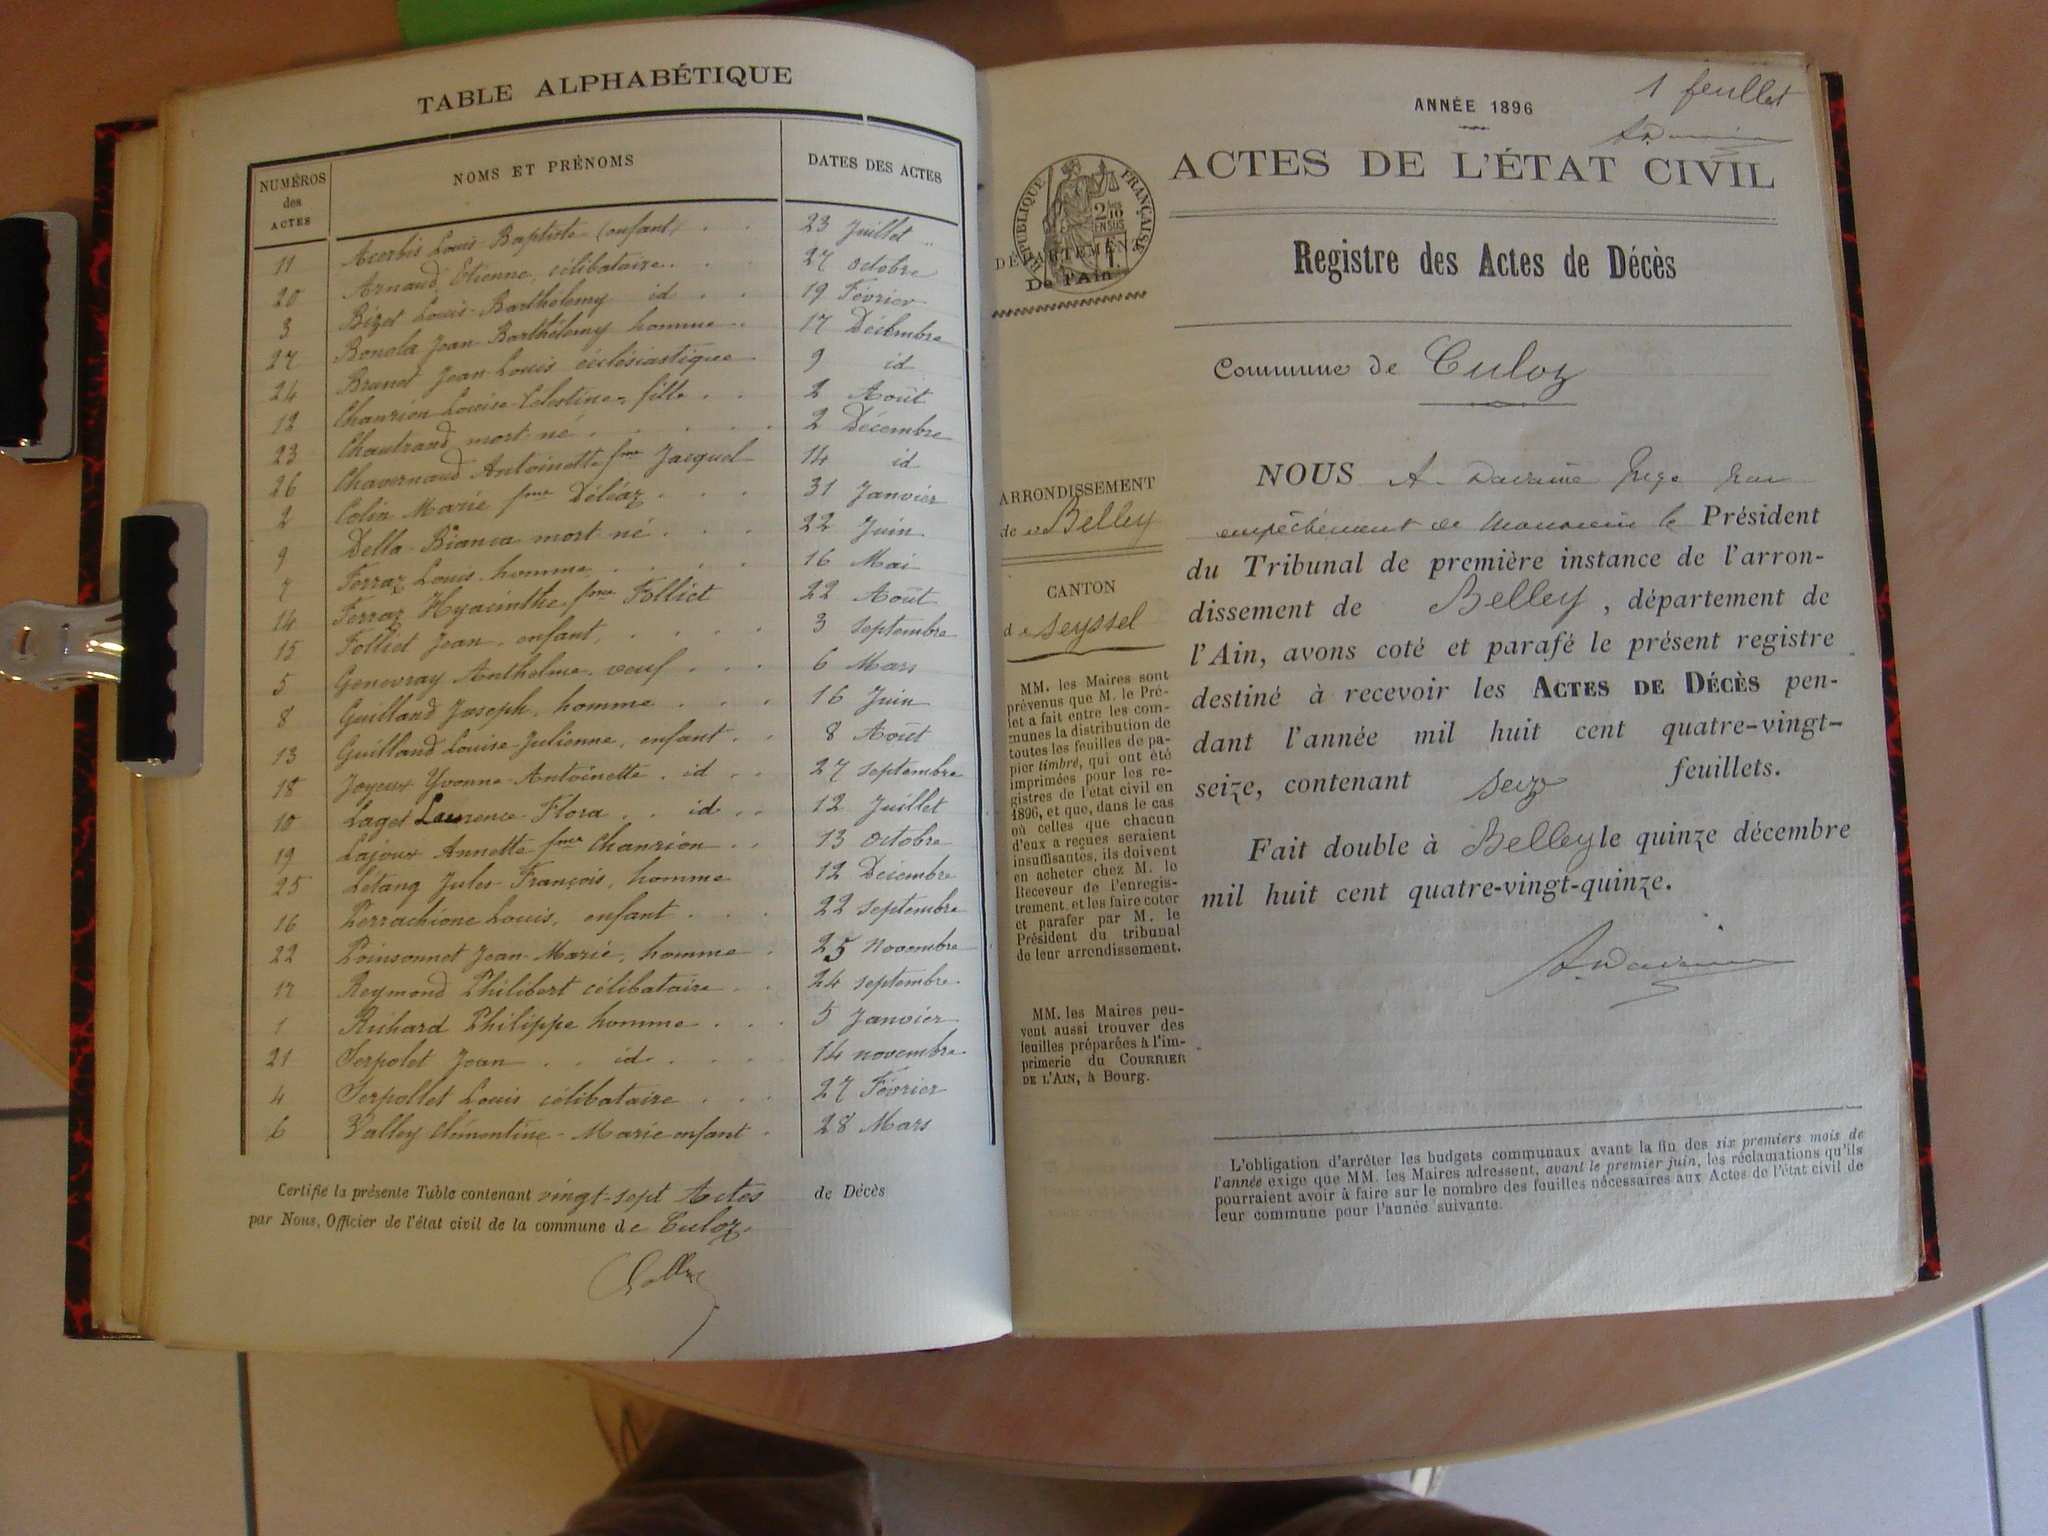 TABLE ALPHABÉTIQUE
NUMÉROS des ACTES NOMS ET PRÉNOMS DATES DES ACTES
11 Acerbis Louis-Baptiste (enfant) . . 23 Juillet
20 Arnaud Etienne, célibataire . . 27 octobre
3 Bizet Louis-Barthélemy id . . 19 Février
27 Bonola Jean Barthélemy homme . . 17 Décembre
24 Brunet Jean-Louis ecclésiastique 9 id
12 Chanrion Louise-Célestine, fille . . 2 Août
23 Chautrand mort né . . . . . 2 Décembre
26 Chavernaud Antoinette fme Jacquel 14 id
2 Colin Marie fme Déléaz . . . 31 Janvier
9 Della-Bianca mort né . . . 22 Juin
7 Ferraz Louis homme . . . . 16 Mai
14 Ferraz Hyacinthe fme Folliet 22 Août
15 Folliet Jean, enfant, . . . . 3 septembre
5 Genevray Anthelme, veuf . . . 6 Mars
8 Guilland Joseph, homme . . . 16 Juin
13 Guilland Louise-Julienne, enfant . . 8 Août
18 Joyeux Yvonne-Antoinette, id . . 27 septembre
10 Laget Laurence-Flora . . id . . 12 Juillet
19 Lajoux Annette fme Chanrion . . 13 octobre
25 Létang Jules-François, homme 12 Décembre
16 Perrachione Louis, enfant . . . 22 septembre
22 Poinsonnet Jean-Marie, homme . 25 novembre
17 Reymond Philibert célibataire . . 24 septembre
1 Richard Philippe homme . . . 5 Janvier
21 Serpolet Jean . . id . . . . 14 novembre
4 Serpollet Louis célibataire . . . 27 Février
6 Valley Clémentine-Marie enfant . 28 Mars
Certifie la présente Table contenant vingt-sept Actes de Décès
par Nous, Officier de l'état civil de la commune de Culoz.
1 feuillet
ANNÉE 1896
ACTES DE L'ÉTAT CIVIL
RÉPUBLIQUE FRANÇAISE
2 10mes EN SUS
DÉPARTEMENT
De l'Ain
Registre des Actes de Décès
Commune de Culoz
ARRONDISSEMENT
de Belley
CANTON
de Seyssel
MM. les Maires sont
prévenus que M. le Pré-
fet a fait entre les com-
munes la distribution de
toutes les feuilles de pa-
pier timbré, qui ont été
imprimées pour les re-
gistres de l'état civil en
1896, et que, dans le cas
où celles que chacun
d'eux a reçues seraient
insuffisantes, ils doivent
en acheter chez M. le
Receveur de l'enregis-
trement, et les faire coter
et parafer par M. le
Président du tribunal
de leur arrondissement.
MM. les Maires peu-
vent aussi trouver des
feuilles préparées à l'im-
primerie du COURRIER
DE L'AIN, à Bourg.
NOUS A. Juge pour
empêchement de Monsieur le Président
du Tribunal de première instance de l'arron-
dissement de Belley, département de
l'Ain, avons coté et parafé le présent registre
destiné à recevoir les ACTES DE DÉCÈS pen-
dant l'année mil huit cent quatre-vingt-
seize, contenant seize feuillets.
Fait double à Belley le quinze décembre
mil huit cent quatre-vingt-quinze.
L'obligation d'arrêter les budgets communaux avant la fin des six premiers mois de
l'année exige que MM. les Maires adressent, avant le premier juin, les réclamations qu'ils
pourraient avoir à faire sur le nombre des feuilles nécessaires aux Actes de l'état civil de
leur commune pour l'année suivante.